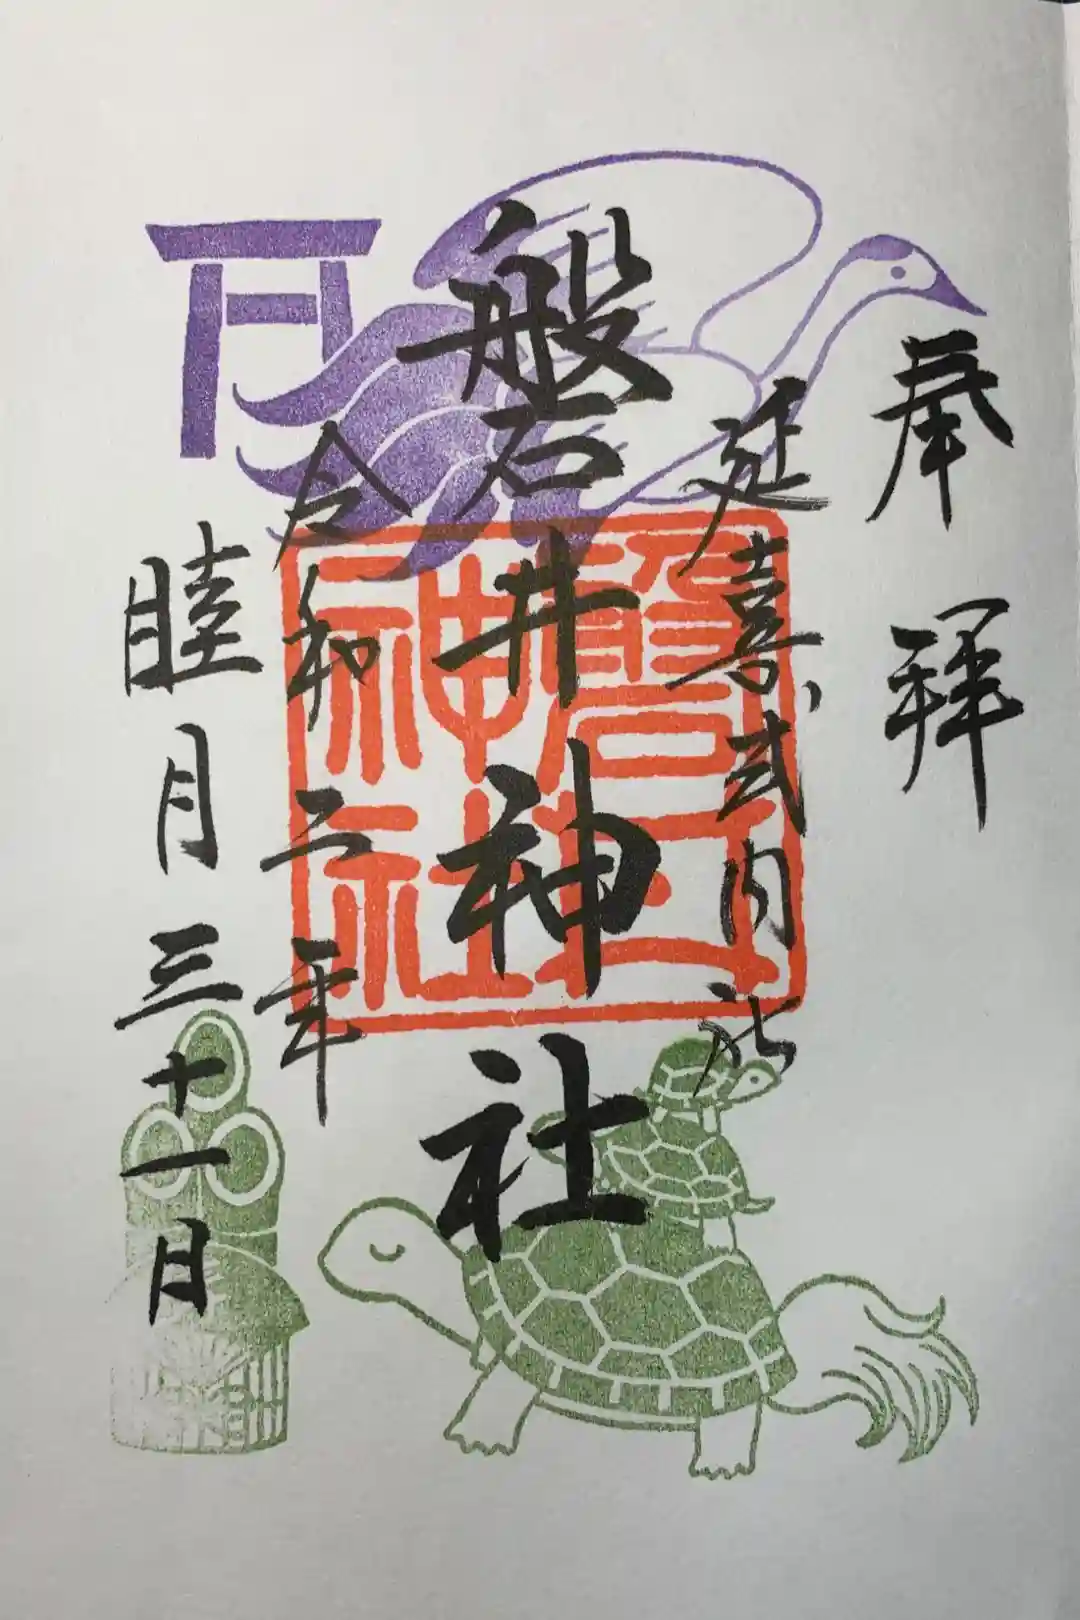 奉拝
延喜式内社
磐井神社
令和二年
睦月三十一日
磐井神社